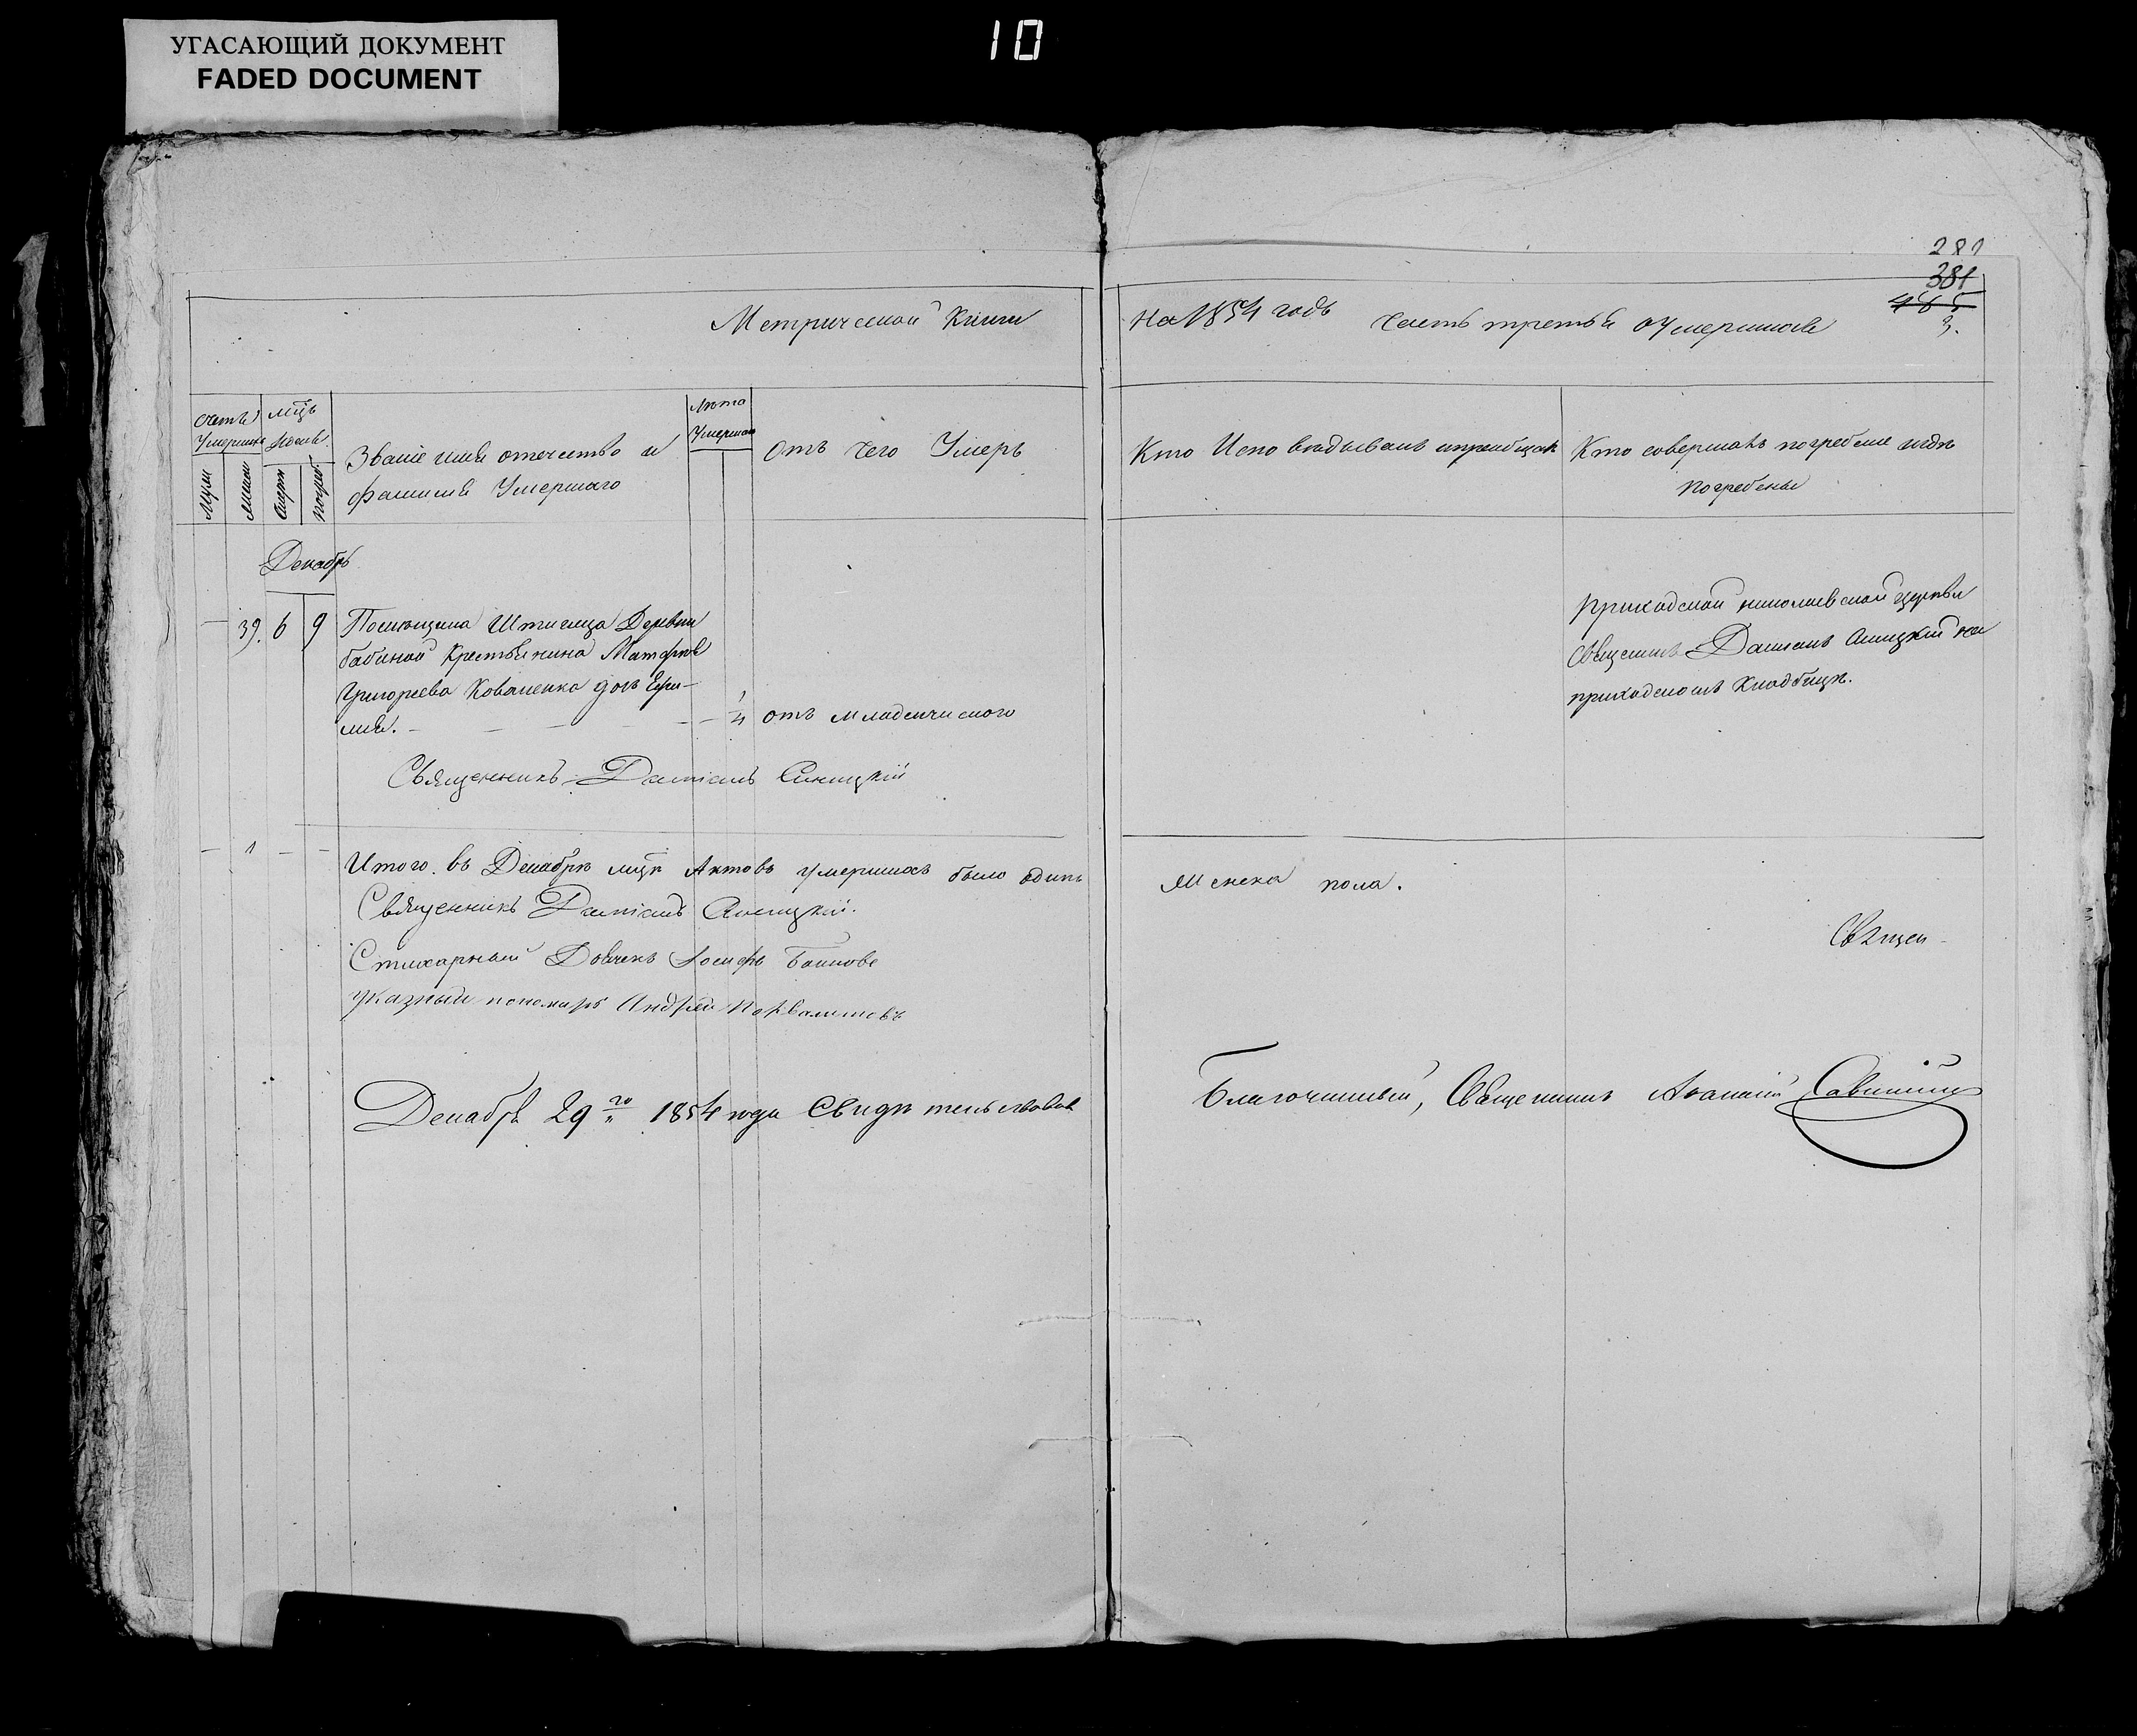 УГАСАЮЩИЙ ДОКУМЕНТ
FADED DOCUMENT
10
281
381
485
3.
Метрической Книги
на 1854 годъ Часть третья о Умершихъ
Счетъ Умершихъ
Мѣсяцъ
Звание имя отечество и
фамилия Умершаго
Лѣта
Умершаго
отъ чего Умеръ
Кто Исповѣдывалъ
Кто совершалъ погребение и гдѣ
погребены
Декабрь
39. 6 9 Помѣщика Деревни
Крестьянина
Григорьева Коваленка дочь Ефи-
мия. 1/4 отъ младенческого
Приходской николаевской церкви
Священникъ Дамианъ на
приходскомъ Кладбищѣ.
Священникъ Даміанъ
1
Итого. въ Декабрѣ мцѣ Актовъ умершихъ было одинъ
Женска пола.
Священникъ Даміанъ
Священ-
Стихарный Дьячекъ Іосифъ
указный пономарь Андрей
Декабря 29го 1854 года Свидѣтельствовалъ
Благочинный, Священникъ